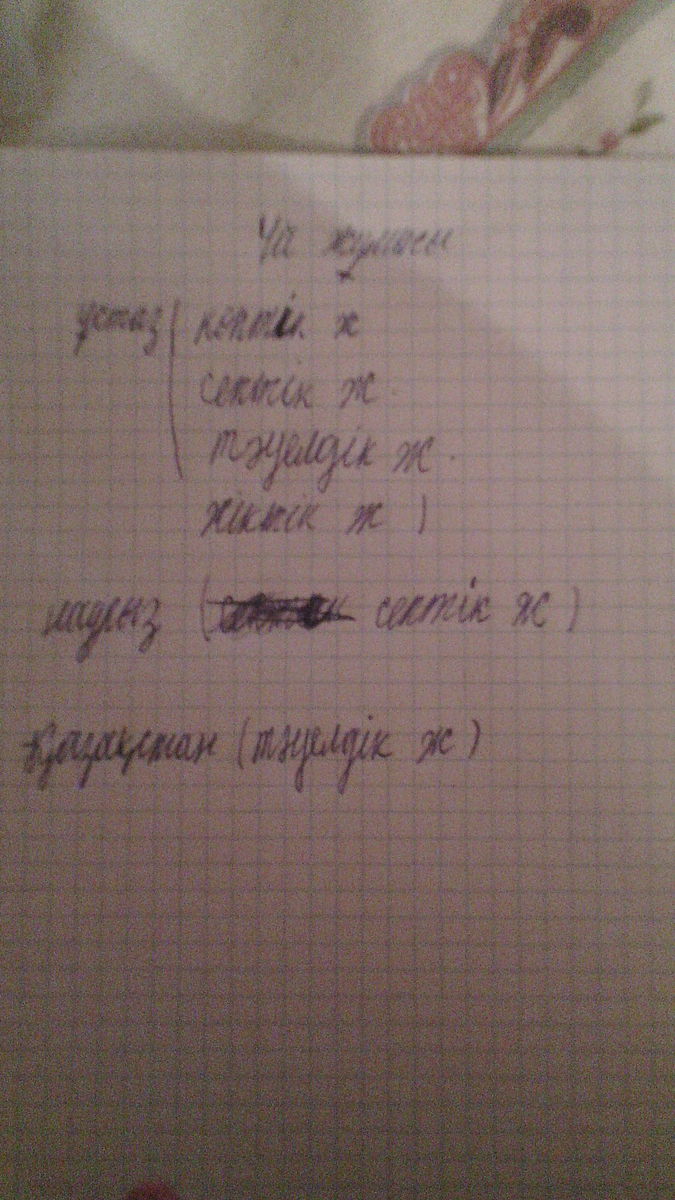 Үй жұмысы
ұстаз (көптік ж
септік ж.
тәуелдік ж.
жіктік ж )
наурыз ( септік ж )
Қазақстан (тәуелдік ж )